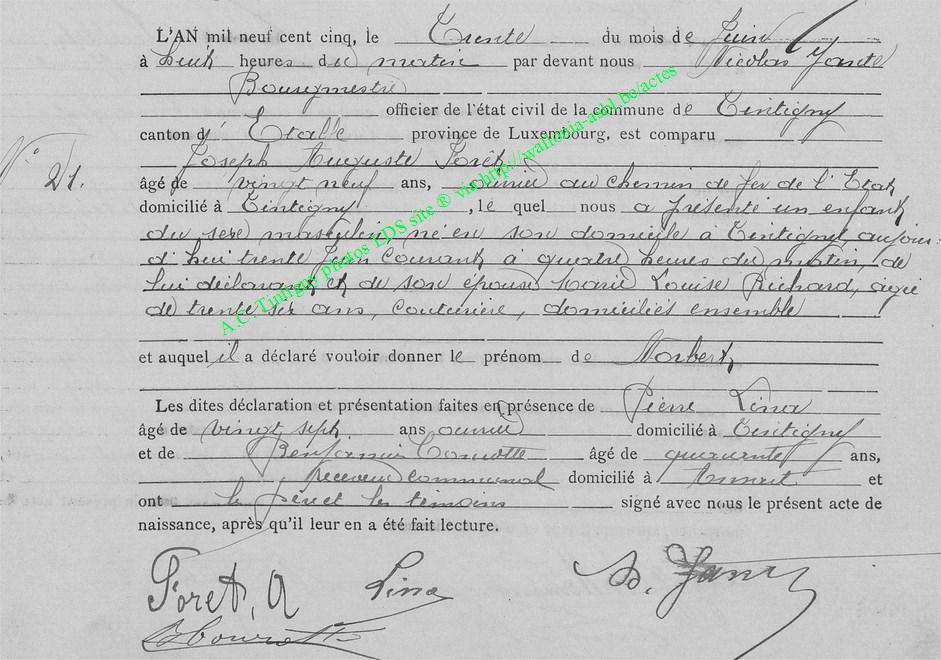 L'AN mil neuf cent cinq, le Trente du mois de Juin
à huit heures du matin par devant nous Nicolas
Bourgmestre
officier de l'état civil de la commune de Tintigny
canton d' Etalle province de Luxembourg, est comparu
Joseph Auguste Foret
N° 21.
âgé de vingt neuf ans, ouvrier au chemin de fer de l'Etat
domicilié à Tintigny, le quel nous a présenté un enfant
du sexe masculin né en son domicile à Tintigny, aujour-
d'hui trente Juin courant à quatre heures du matin, de
lui déclarant et de son épouse Marie Louise Richard, agée
de trente six ans, couturière, domiciliés ensemble
et auquel il a déclaré vouloir donner le prénom de Norbert
Les dites déclaration et présentation faites en présence de Pierre
âgé de vingt sept ans ouvrier domicilié à Tintigny
et de Benjamin âgé de quarante ans,
receveur communal domicilié à et
ont le père et les témoins signé avec nous le présent acte de
naissance, après qu'il leur en a été fait lecture.
Foret, A
A.C. Tintigny photos LDS site ® via http://wallonia-asbl.be/actes